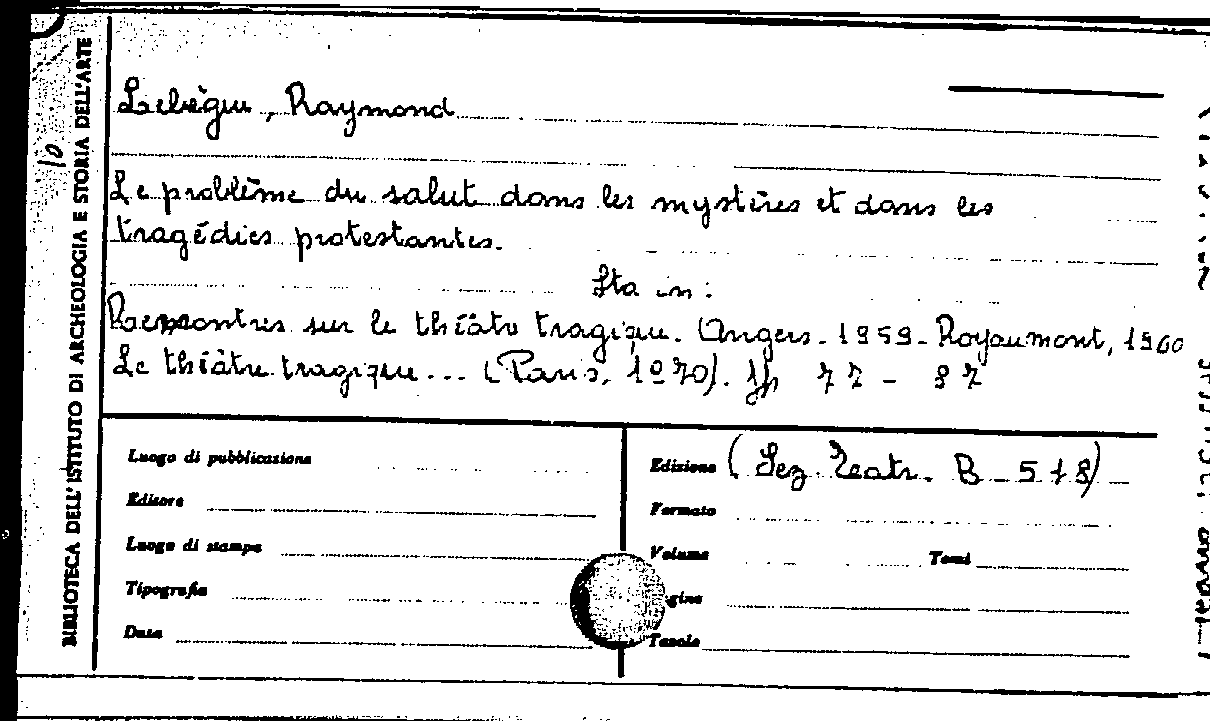 BIBLIOTECA DELL'ISTITUTO DI ARCHEOLOGIA E STORIA DELL'ARTE
Lebègue, Raymond
Le problème du salut dans les mystères et dans les
tragédies protestantes.
Sta in:
Rencontres sur le théâtre tragique. (Angers. 1959. Royaumont, 1960
Le théâtre tragique... (Paris, 1970). pp 77 - 87
Luogo di pubblicazione
Editore
Luogo di stampa
Tipografia
Data
Edizione (Sez. Teatr. B - 518)
Formato
Volume Tomi
gine
Tavole